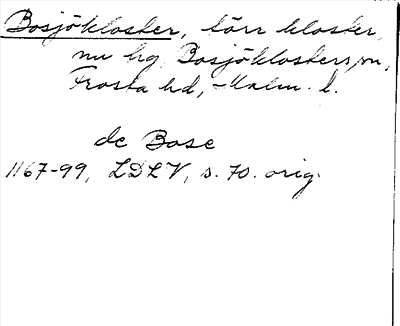 Bosjökloster, förr kloster,
nu hg, Bosjöklosters sn,
Frosta hd, Malm. l.
de Bose
1167-99, LDLV, s. 70. orig.